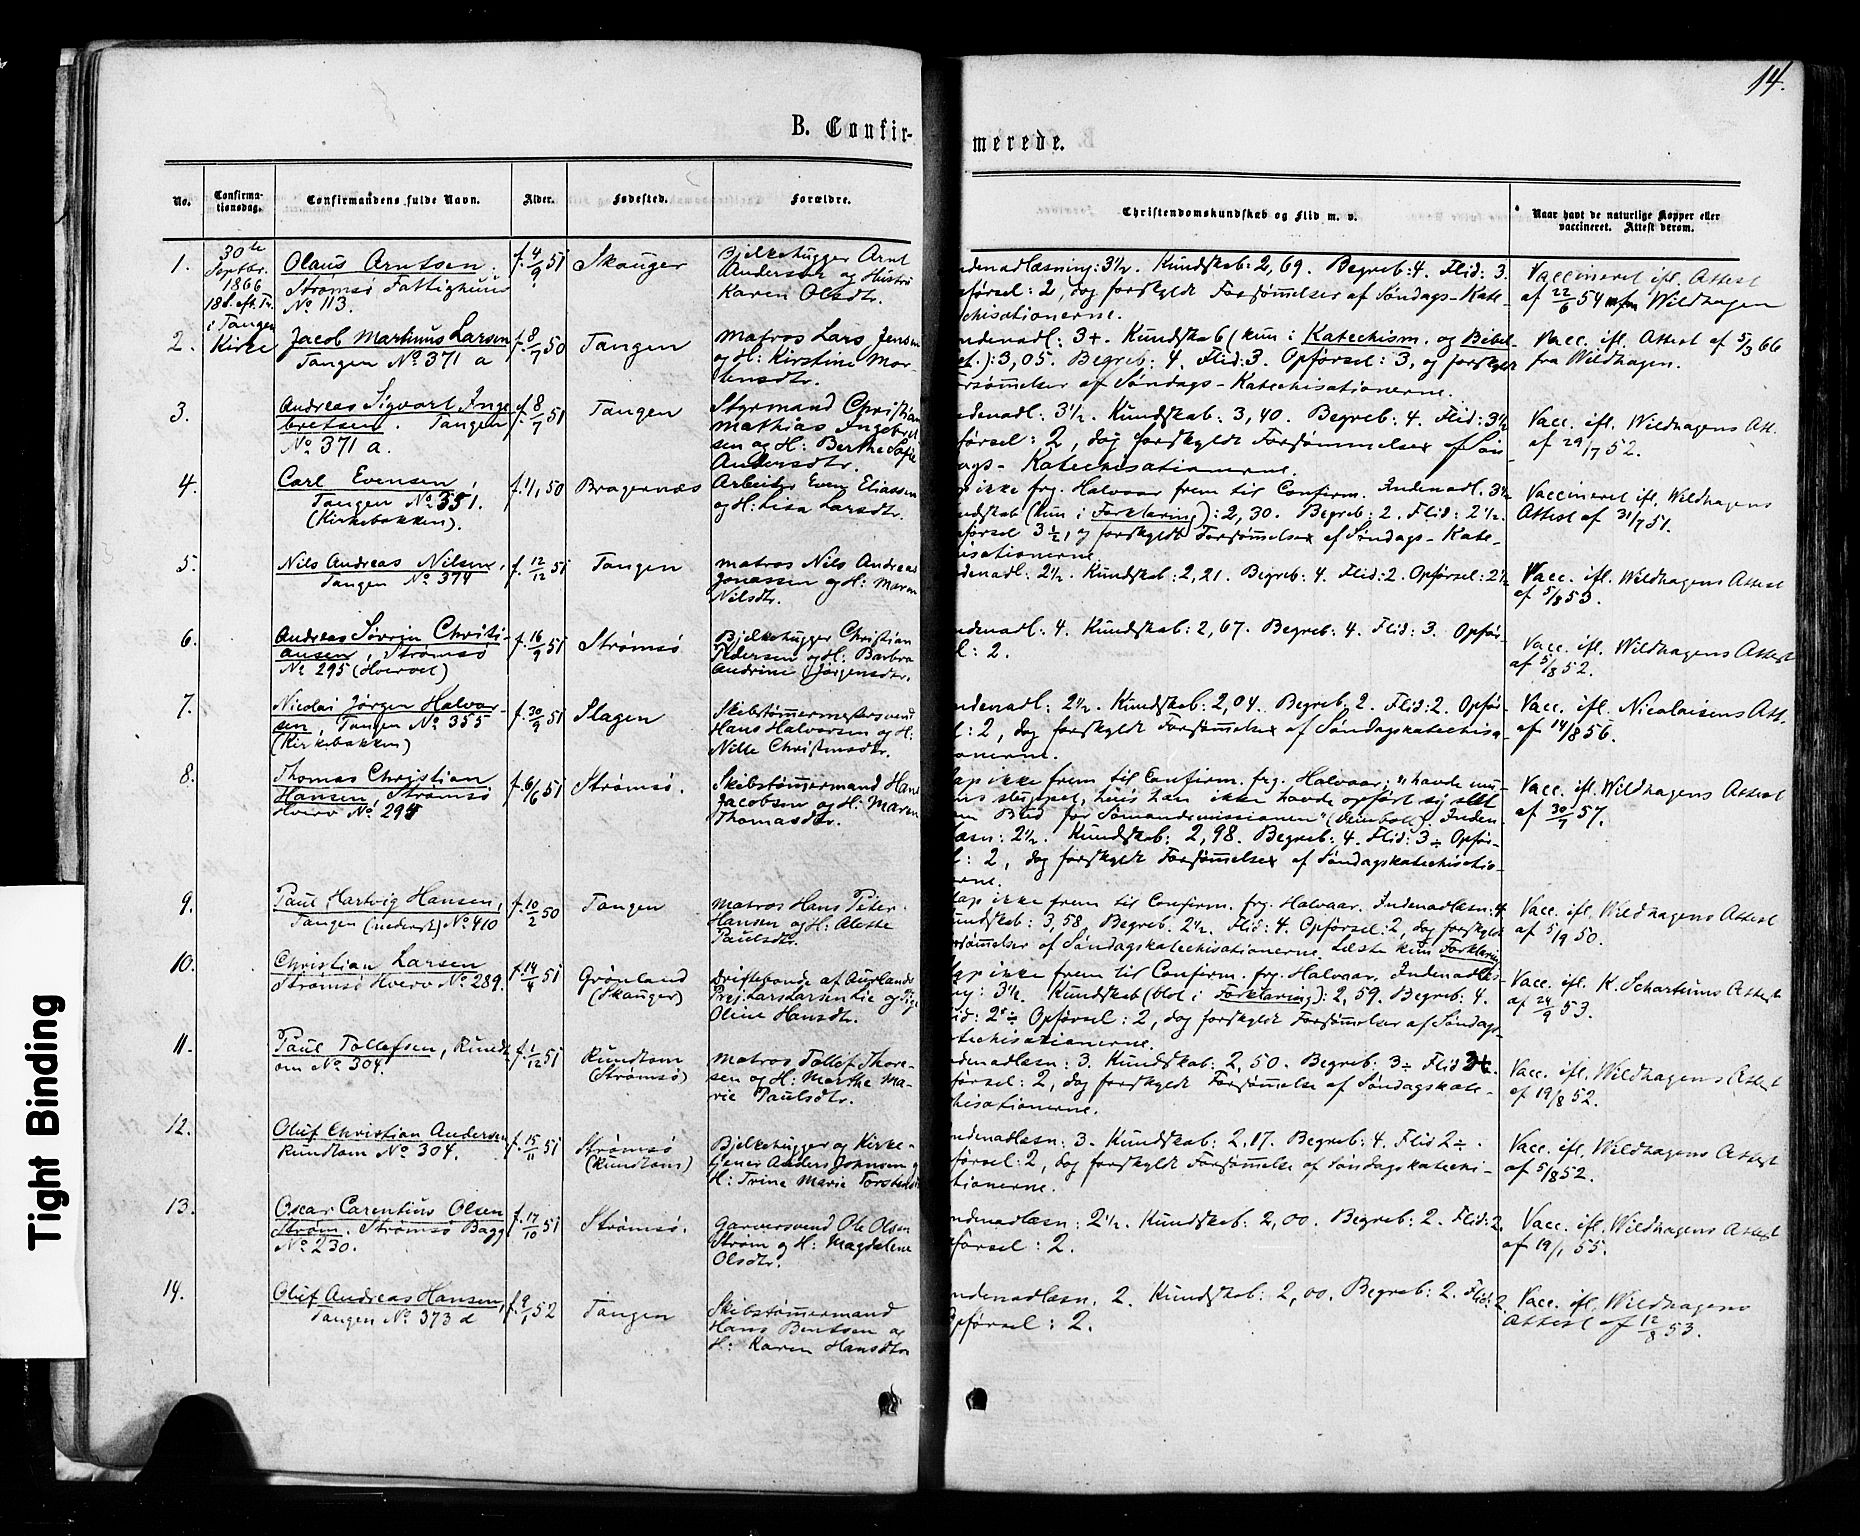 14.
B. Confir-
merede.
No.
Confirma-
tionsdag.
Confirmandens fulde Navn.
Alder.
Fødested.
Forældre.
Christendomskundskab og Flid m. v.
Naar havt de naturlige Kopper eller
vaccineret. Attest derom.
30te
Septbr.
1866
18 S. eft. Tr.
i Tangen
Kirke
1.
Olaus Arntsen.
Strømsø Fattighuus
No 113.
f. 4/9 51
Skouger
Bjelkehugger Arnt
Andersen og Hustru
Karen Olsdtr.
ndenadlæsning: 3½. Kundskab: 2,69. Begreb: 4. Flid: 3.
førsel: 2, dog forskyldt Forsømmelser af Søndags-Kate-
chisationerne.
Vaccineret ifl. Attest
af 22/6 54 fra Wildhagen
2.
Jacob Martinus Larsen
Tangen No 371 a
f. 8/7 50
Tangen
Matros Lars Jensen
og H: Kirstine Mor-
tensdtr.
ndenadl: 3+. Kundskab (kun i Katechism. og Bibel-
): 3,05. Begreb: 4. Flid: 3. Opførsel: 3, og forskyldt
Forsømmelser af Søndags-Katechisationerne.
Vacc. ifl. Attest af 5/3 66
fra Wildhagen.
3.
Andreas Sigvart Inge-
bretsen. Tangen
No 371 a.
f. 8/7 51
Tangen
Styrmand Christian
Mathias Ingebret-
sen og H: Berthe Sofie
Andersdtr.
ndenadl: 3½. Kundskab: 3,40. Begreb: 4. Flid: 3½
førsel: 2, dog forskyldt Forsømmelser af Søn-
dags-Katechisationerne.
Vacc. ifl. Wildhagens Att.
af 29/7 52.
4.
Carl Evensen,
Tangen No 351.
(Kirkebakken).
f. 1/1 50
Bragernæs
Arbeider Even Eliassen
og H: Lisa Larsdtr.
ap ikke frg. Halvaar frem til Confirm. Indenadl. 3½
ndskab (kun i Forklaring): 2,30. Begreb: 2. Flid: 2½.
førsel 3½, og forskyldt Forsømmelser af Søndags-Kate-
hisationerne.
Vaccineret ifl. Wildhagens
Attest af 31/7 51.
5.
Nils Andreas Nilsen,
Tangen No 374
f. 12/12 51
Tangen
Matros Nils Andreas
Jonassen og H: Maren
Nilsdtr.
ndenadl: 2½. Kundskab: 2,21. Begreb: 4. Flid: 2. Opførsel: 2½
Vacc. ifl. Wildhagens Attest
af 5/8 53.
6.
Andreas Søvrin Christi-
ansen, Strømsø
No 295 (Hvervet)
f. 16/9 51
Strømsø
Bjelkehugger Christian
Pedersen og H: Barbra
Andrine Jørgensdtr.
ndenadl: 4. Kundskab: 2,67. Begreb: 4. Flid: 3. Opfør-
l: 2.
Vacc. ifl. Wildhagens Attest
af 5/8 52.
7.
Nicolai Jørgen Halvor-
sen, Tangen No 355
(Kirkebakken)
f. 30/9 51
Slagen
Skibstømmermestersvend
Hans Halvorsen og H:
Nille Christensdtr.
ndenadl: 2½. Kundskab: 2,04. Begreb: 2. Flid: 2. Opfør-
l: 2, dog forskyldt Forsømmelser af Søndagskatechisa-
onerne.
Vacc. ifl. Nicolaisens Att.
af 14/8 56.
8.
Thomas Christian
Hansen, Strømsø
Hverv No 295
f. 6/6 51
Strømsø.
Skibstømmermand Hans
Jacobsen og H: Maren
Thomasdtr.
ap ikke frem til Confirm. frg. Halvaar; "havde nu-
sluppet, hvis han ikke havde opført sig slet
om Bud for Sømandsmissionen" (Deinboll). Inden-
læsn: 2½. Kundskab: 2,98. Begreb: 4. Flid: 3÷ Opfør-
l: 2, dog forskyldt Forsømmelser af Søndagskatechisatio-
nerne.
Vacc. ifl. Wildhagens Attest
af 30/7 57.
9.
Paul Hartvig Hansen,
Tangen (nederst) No 410
f. 10/2 50
Tangen
Matros Hans Peter
Hansen og H: Alette
Paulsdtr.
ap ikke frem til Confirm. frg. Halvaar. Indenadlæsn: 4
undskab: 3,58. Begreb: 2½. Flid: 4. Opførsel: 2, dog forskyldt
orsømmelser af Søndagskatechisationerne. Læste kun Forklaring
Vacc. ifl. Wildhagens Attest
af 5/9 50.
10.
Christian Larsen
Strømsø Hverv No 289.
f. 14/4 51
Grønland
(Skouger)
Driftebonde af Aurlands
Prgj. Lars Larsen Lie og Pige
Oline Hansdtr.
ap ikke frem til Confirm. frg. Halvaar. Indenadlæs-
ng: 3½. Kundskab (blot i Forklaring): 2,59. Begreb: 4.
id: 2÷ Opførsel: 2, dog forskyldt Forsømmelser af Søndags-
atechisationerne.
Vacc. ifl. K. Schartums Attest
af 24/9 53.
11.
Paul Tollefsen, Rundt
om No 304.
f. 1/12 51
Rundtom
(Strømsø)
Matros Tollef Thore-
sen og H: Marthe Ma-
rie Paulsdtr.
ndenadlæsn: 3. Kundskab: 2,50. Begreb: 3÷ Flid 2+.
førsel: 2, dog forskyldt Forsømmelse af Søndagskate-
hisationerne.
Vacc. ifl. Wildhagens Attest
af 19/8 52.
12.
Oluf Christian Andersen
Rundtom No 304.
f. 15/11 51
Strømsø
(Rundtom)
Bjelkehugger og Kirke-
tjener Anders Johnsen og
H: Trine Marie Torstensdtr
ndenadlæsn: 3. Kundskab: 2,17. Begreb: 4. Flid 2÷.
førsel: 2, dog forskyldt Forsømmelse af Søndagskatechi-
tionerne.
Vacc. ifl. Wildhagens Attest
af 5/8 52.
13.
Oscar Carentius Olsen
Strøm. Strømsø Bagg.
No 230.
f. 17/10 51
Strømsø.
Garversvend Ole Olsen
Strøm og H: Magdalene
Olsdtr.
ndenadlæsn: 2½. Kundskab: 2,00. Begreb: 2. Flid: 2.
førsel: 2.
Vacc. ifl. Wildhagens Attest
af 19/1 55.
14.
Oluf Andreas Hansen,
Tangen No 373 d
f. 9/1 52
Tangen
Skibstømmermand
Hans Bentsen og
H: Karen Hansdtr
ndenadlæsn. 2. Kundskab: 2,00. Begreb: 2. Flid: 2.
Opførsel: 2.
Vacc. ifl. Wildhagens
Attest af 12/8 53.
Tight Binding